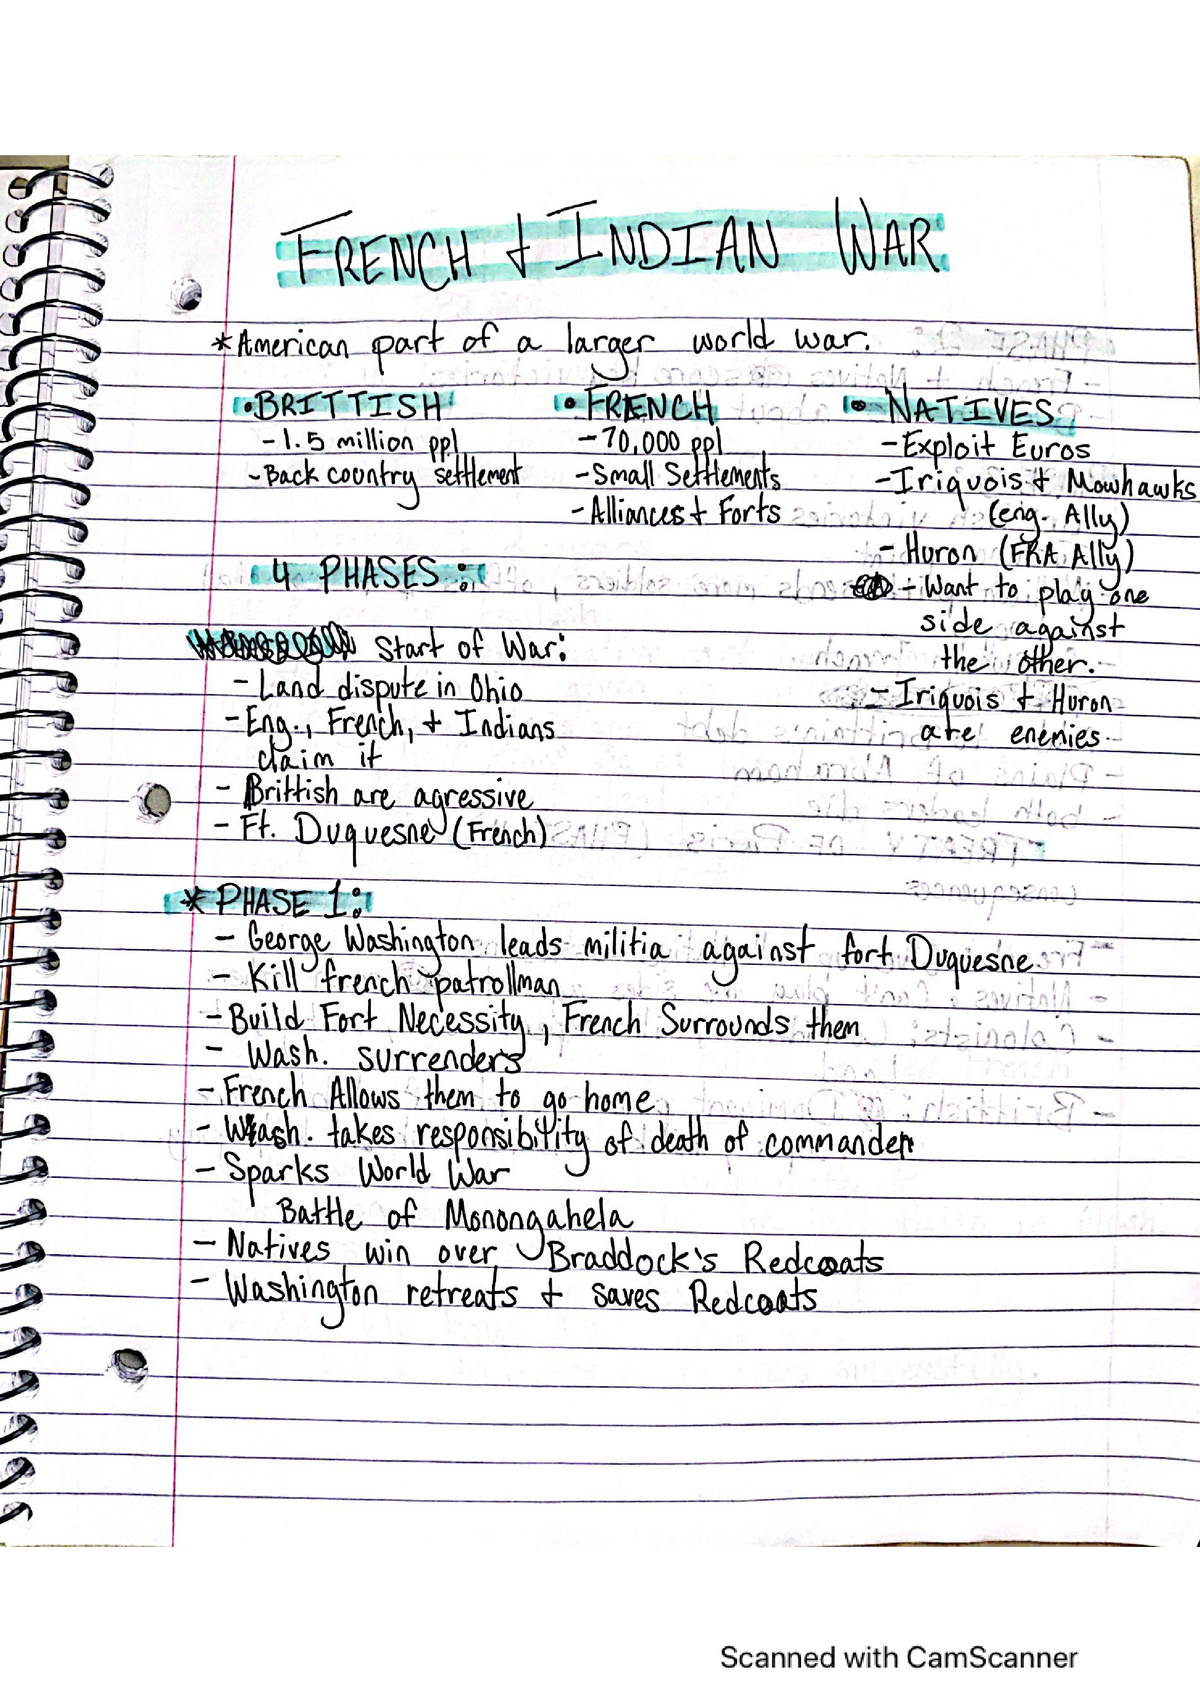 FRENCH + INDIAN WAR
*American part of a larger world war.
• BRITTISH
- 1.5 million ppl
- Back country settlement
• FRENCH
- 70,000 ppl
- Small Settlements
- Alliances + Forts
• NATIVES
- Exploit Euros
- Iriquois + Mowhawks
(eng. Ally)
- Huron (FRA Ally)
- Want to play one
side against
the other.
- Iriquois + Huron
are enemies.
4 PHASES:
Start of War:
- Land dispute in Ohio
- Eng., French, + Indians
claim it
- Brittish are agressive
- Ft. Duquesne (French)
* PHASE 1:
- George Washington leads militia against fort Duquesne
- Kill french patrollman
- Build Fort Necessity, French Surrounds them
- Wash. surrenders
- French Allows them to go home
- Wash. takes responsibility of death of commander
- Sparks World War
Battle of Monongahela
- Natives win over Braddock's Redcoats
- Washington retreats + saves Redcoats
Scanned with CamScanner